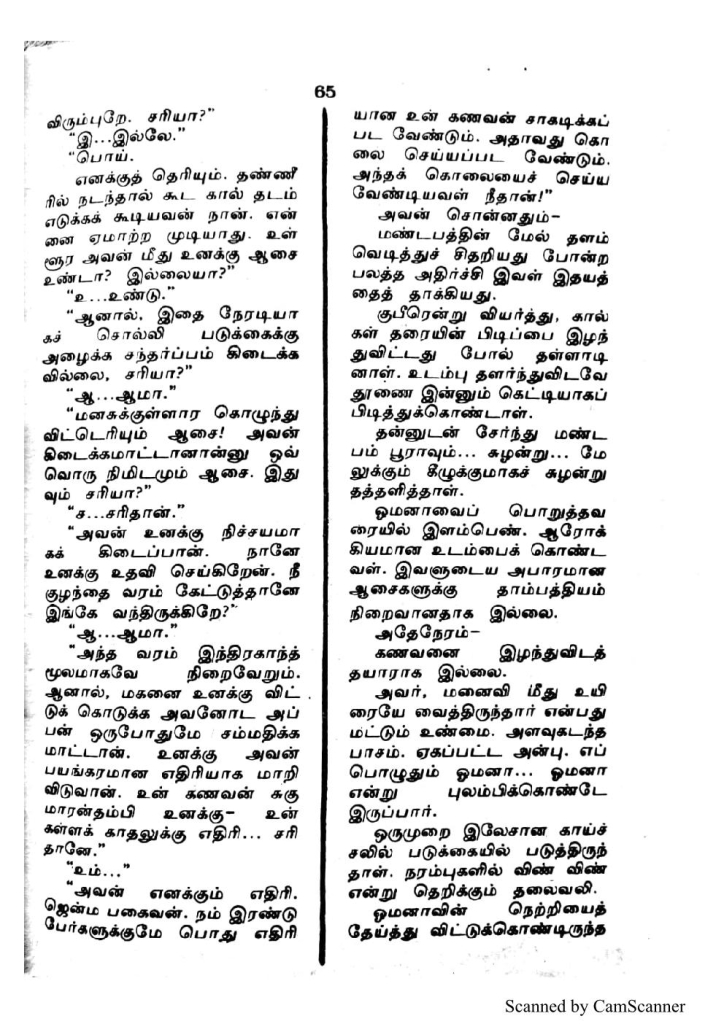 65
விரும்புறே. சரியா?"
"இ...இல்லே."
"பொய்.
எனக்குத் தெரியும். தண்ணீ
ரில் நடந்தால் கூட கால் தடம்
எடுக்கக் கூடியவன் நான். என்
னை ஏமாற்ற முடியாது. உள்
ளூர அவன் மீது உனக்கு ஆசை
உண்டா? இல்லையா?"
"உ...உண்டு."
"ஆனால், இதை நேரடியா
கச் சொல்லி படுக்கைக்கு
அழைக்க சந்தர்ப்பம் கிடைக்க
வில்லை, சரியா?"
"ஆ...ஆமா."
"மனசுக்குள்ளார கொழுந்து
விட்டெரியும் ஆசை! அவன்
கிடைக்கமாட்டானான்னு ஒவ்
வொரு நிமிடமும் ஆசை. இது
வும் சரியா?"
"ச...சரிதான்."
"அவன் உனக்கு நிச்சயமா
கக் கிடைப்பான். நானே
உனக்கு உதவி செய்கிறேன். நீ
குழந்தை வரம் கேட்டுத்தானே
இங்கே வந்திருக்கிறே?"
"ஆ...ஆமா."
"அந்த வரம் இந்திரகாந்த்
மூலமாகவே நிறைவேறும்.
ஆனால், மகனை உனக்கு விட்
டுக் கொடுக்க அவனோட அப்
பன் ஒருபோதுமே சம்மதிக்க
மாட்டான். உனக்கு அவன்
பயங்கரமான எதிரியாக மாறி
விடுவான். உன் கணவன் சுகு
மாரன்தம்பி உனக்கு– உன்
கள்ளக் காதலுக்கு எதிரி... சரி
தானே."
"உம்..."
"அவன் எனக்கும் எதிரி.
ஜென்ம பகைவன். நம் இரண்டு
பேர்களுக்குமே பொது எதிரி
யான உன் கணவன் சாகடிக்கப்
பட வேண்டும். அதாவது கொ
லை செய்யப்பட வேண்டும்.
அந்தக் கொலையைச் செய்ய
வேண்டியவள் நீதான்!"
அவன் சொன்னதும்–
மண்டபத்தின் மேல் தளம்
வெடித்துச் சிதறியது போன்ற
பலத்த அதிர்ச்சி இவள் இதயத்
தைத் தாக்கியது.
குபீரென்று வியர்த்து, கால்
கள் தரையின் பிடிப்பை இழந்
துவிட்டது போல் தள்ளாடி
னாள். உடம்பு தளர்ந்துவிடவே
தூணை இன்னும் கெட்டியாகப்
பிடித்துக்கொண்டாள்.
தன்னுடன் சேர்ந்து மண்ட
பம் பூராவும்... சுழன்று... மே
லுக்கும் கீழுக்குமாகச் சுழன்று
தத்தளித்தாள்.
ஓமனாவைப் பொறுத்தவ
ரையில் இளம்பெண். ஆரோக்
கியமான உடம்பைக் கொண்ட
வள். இவளுடைய அபாரமான
ஆசைகளுக்கு தாம்பத்தியம்
நிறைவானதாக இல்லை.
அதேநேரம்–
கணவனை இழந்துவிடத்
தயாராக இல்லை.
அவர், மனைவி மீது உயி
ரையே வைத்திருந்தார் என்பது
மட்டும் உண்மை. அளவுகடந்த
பாசம். ஏகப்பட்ட அன்பு. எப்
பொழுதும் ஓமனா... ஓமனா
என்று புலம்பிக்கொண்டே
இருப்பார்.
ஒருமுறை இலேசான காய்ச்
சலில் படுக்கையில் படுத்திருந்
தாள். நரம்புகளில் விண் விண்
என்று தெறிக்கும் தலைவலி.
ஓமனாவின் நெற்றியைத்
தேய்த்து விட்டுக்கொண்டிருந்த
Scanned by CamScanner